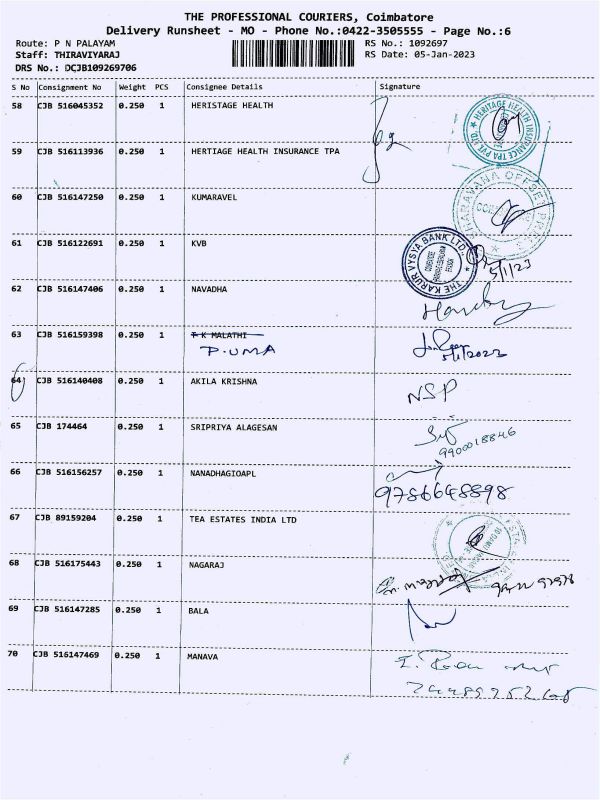 THE PROFESSIONAL COURIERS, Coimbatore
Delivery Runsheet - MO - Phone No.:0422-3505555 - Page No.:6
Route: P N PALAYAM RS No.: 1092697
Staff: THIRAVIYARAJ RS Date: 05-Jan-2023
DRS No.: DCJB109269706
S No Consignment No Weight PCS Consignee Details Signature
58 CJB 516045352 0.250 1 HERISTAGE HEALTH
HERITAGE HEALTH INSURANCE TPA PVT. LTD.
59 CJB 516113936 0.250 1 HERTIAGE HEALTH INSURANCE TPA
60 CJB 516147250 0.250 1 KUMARAVEL
OFFSET
61 CJB 516122691 0.250 1 KVB
THE KARUR VYSYA BANK LTD.
5/1/23
62 CJB 516147406 0.250 1 NAVADHA
63 CJB 516159398 0.250 1 P K MALATHI
P.UMA
5/1/2023
64 CJB 516140408 0.250 1 AKILA KRISHNA NSP
65 CJB 174464 0.250 1 SRIPRIYA ALAGESAN
9900018846
66 CJB 516156257 0.250 1 NANADHAGIOAPL
9786648898
67 CJB 89159204 0.250 1 TEA ESTATES INDIA LTD
68 CJB 516175443 0.250 1 NAGARAJ
69 CJB 516147285 0.250 1 BALA
70 CJB 516147469 0.250 1 MANAVA